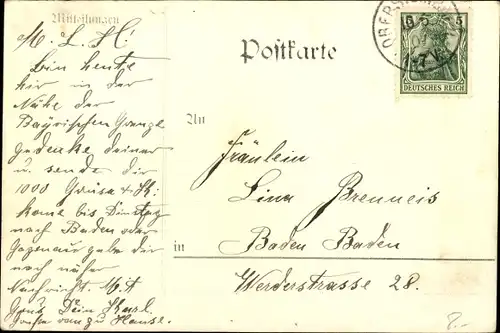 Mitteilungen
M. L. H!
Bin heute
hier in der
Nähe der
Bayrischen Grenze
gedenke deiner
u. sende dir
1000 Grüsse + K:
kome bis Dinstag
nach Baden oder
gebe dir
noch näher
Nachricht. Mit
Gruß Dein Karl.
zu Hause.
Postkarte
5 5
DEUTSCHES REICH
An
Fräulein
Lina Brenneis
in Baden Baden
Werderstrasse 28.
8.-